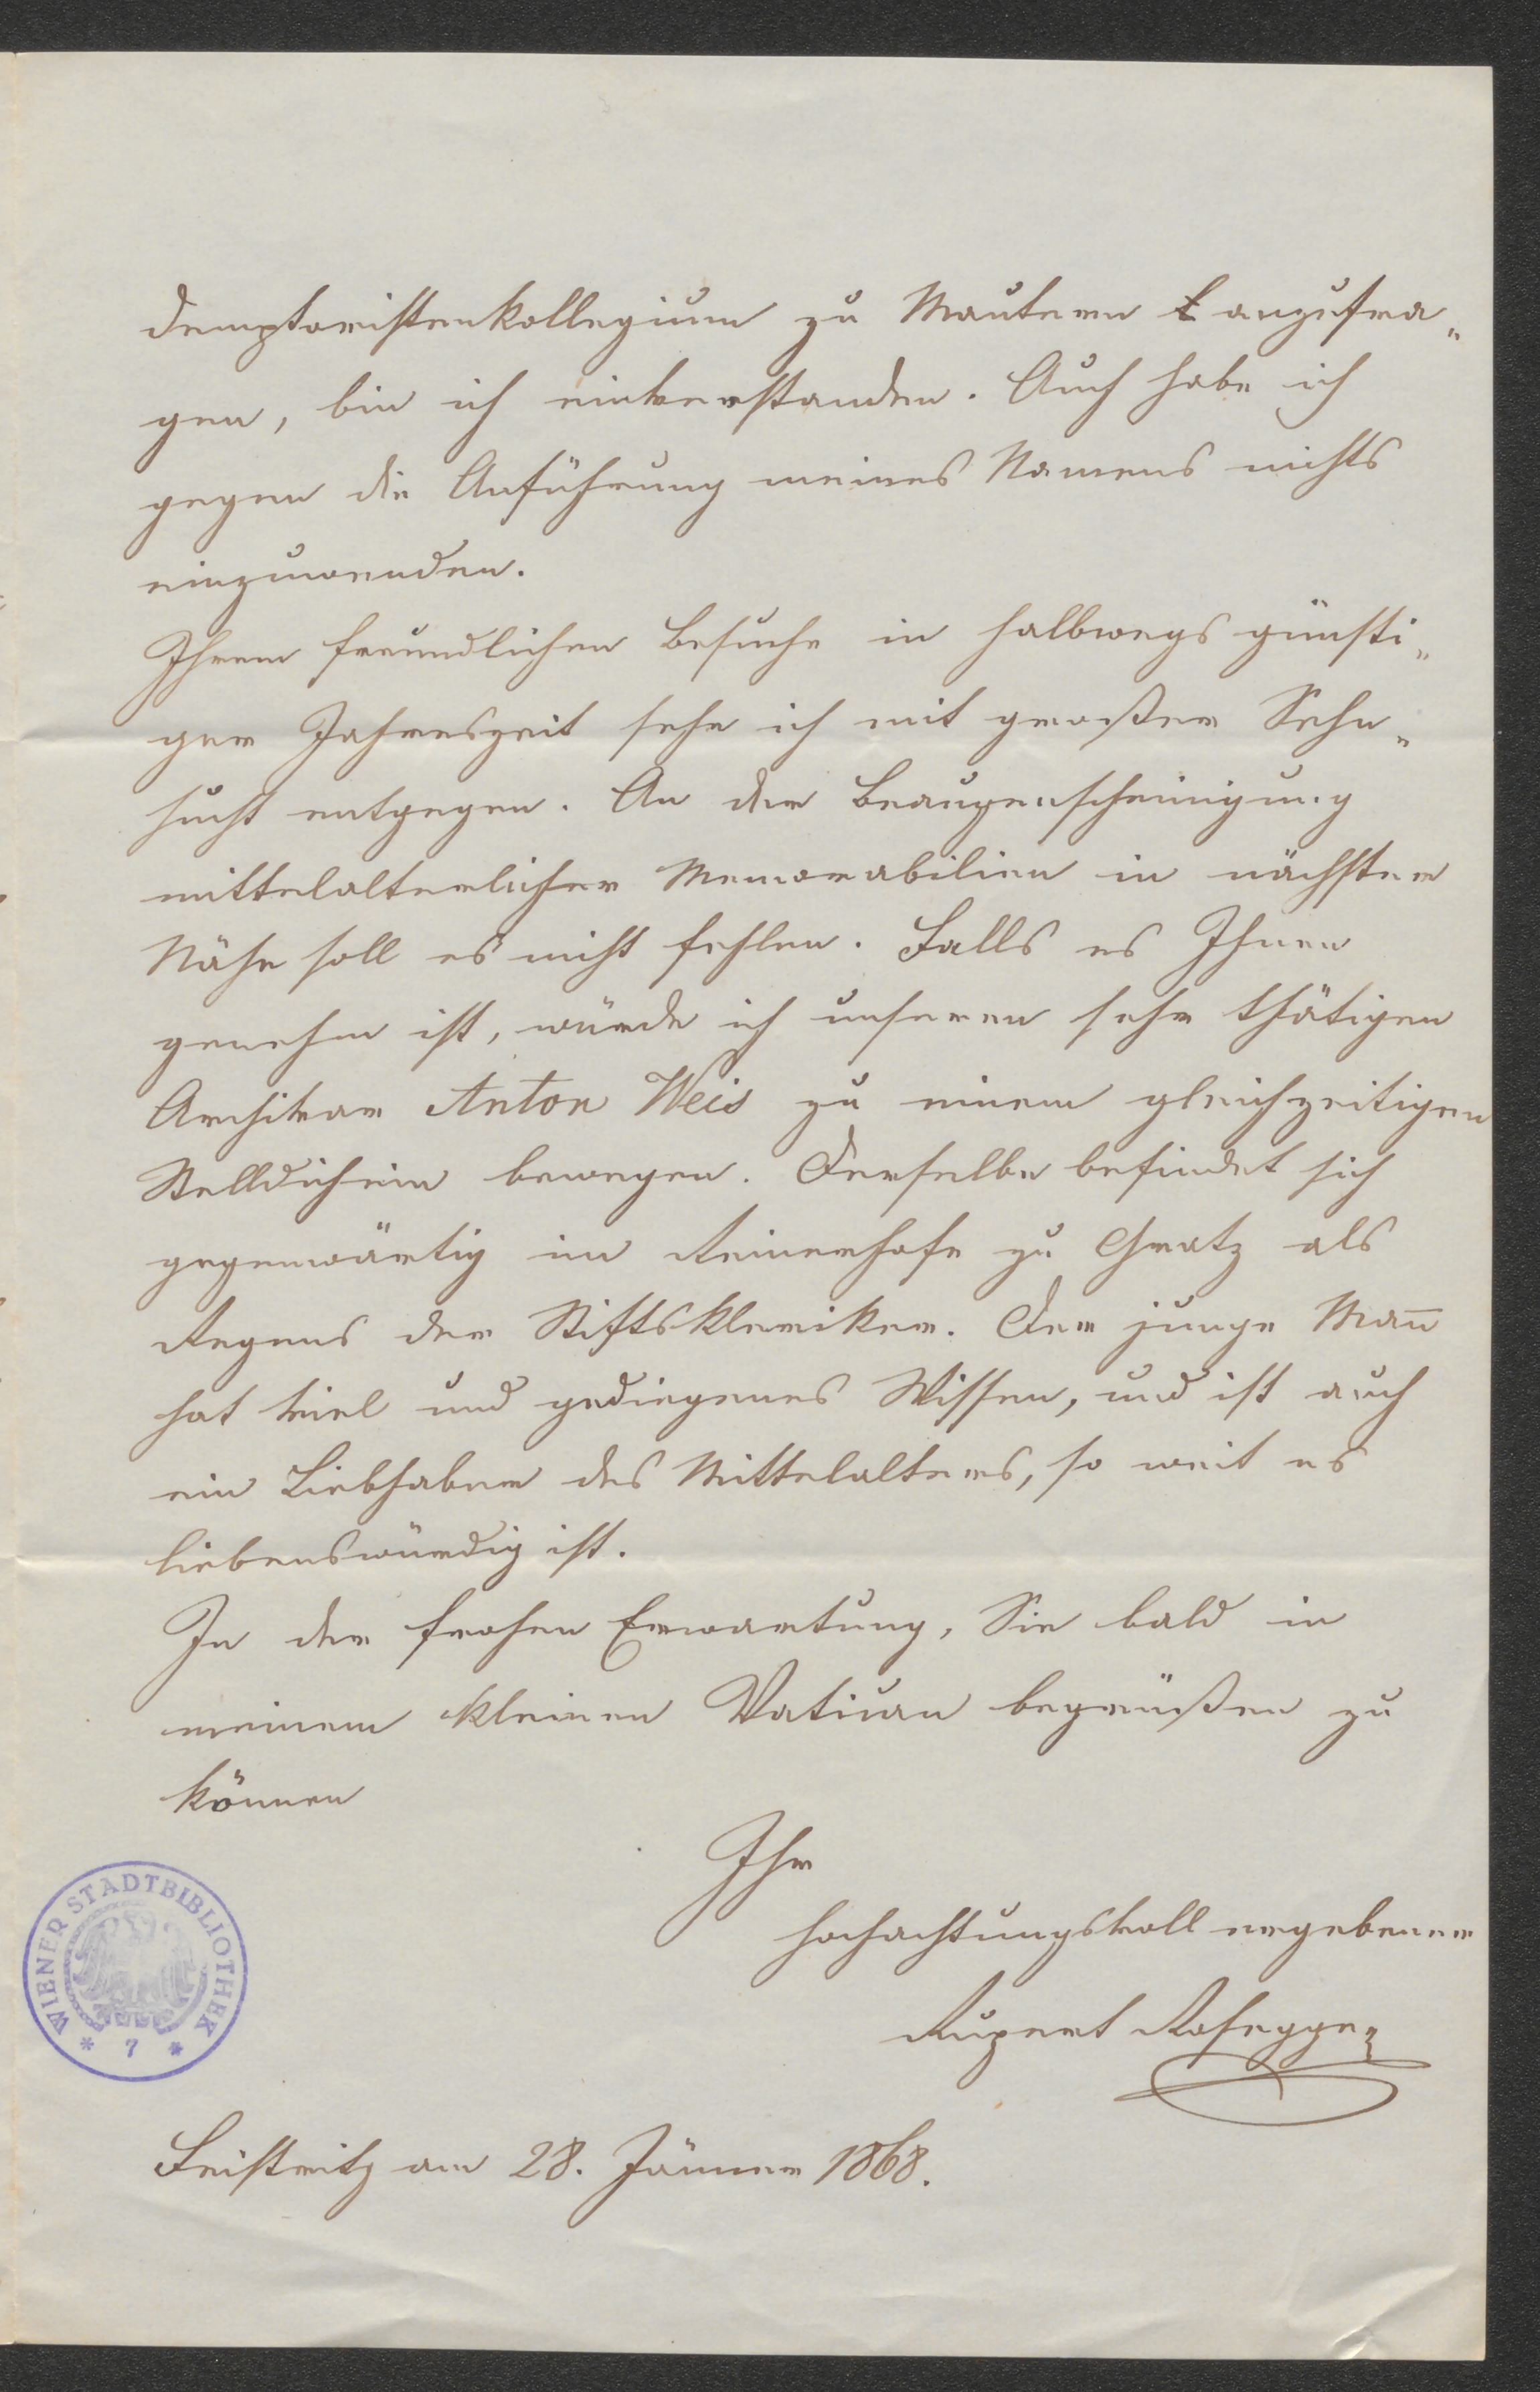 demptoristenkollegium zu Mautern anzufra„
gen, bin ich einverstanden. Auch habe ich
gegen die Anführung meines Namens nichts
einzuwenden.
Ihrem freundlichen Besuche in halbwegs günsti„
ger Jahreszeit sehe ich mit großer Sehn„
sucht entgegen. An der Beaugenscheinigung
mittelalterlicher Memorabilien in nächster
Nähe soll es nicht fehlen. Falls es Ihnen
genehm ist, würde ich unseren sehr thätigen
Archivar Anton Weis zu einem gleichzeitigen
Stelldichein bewegen. Derselbe befindet sich
gegenwärtig im Reinerhofe zu Gratz als
Regens der Stiftskleriker. Der junge Man̄
hat viel und gediegenes Wissen, und ist auch
ein Liebhaber des Mittelalters, so weit es
liebenswürdig ist.
In der frohen Erwartung, Sie bald in
meinem kleinen Vatican begrüßen zu
können
Ihr
hochachtungsvoll ergebener
Rupert Rosegger
WIENER STADTBIBLIOTHEK
* 7 *
Feistritz am 28. Jänner 1868.